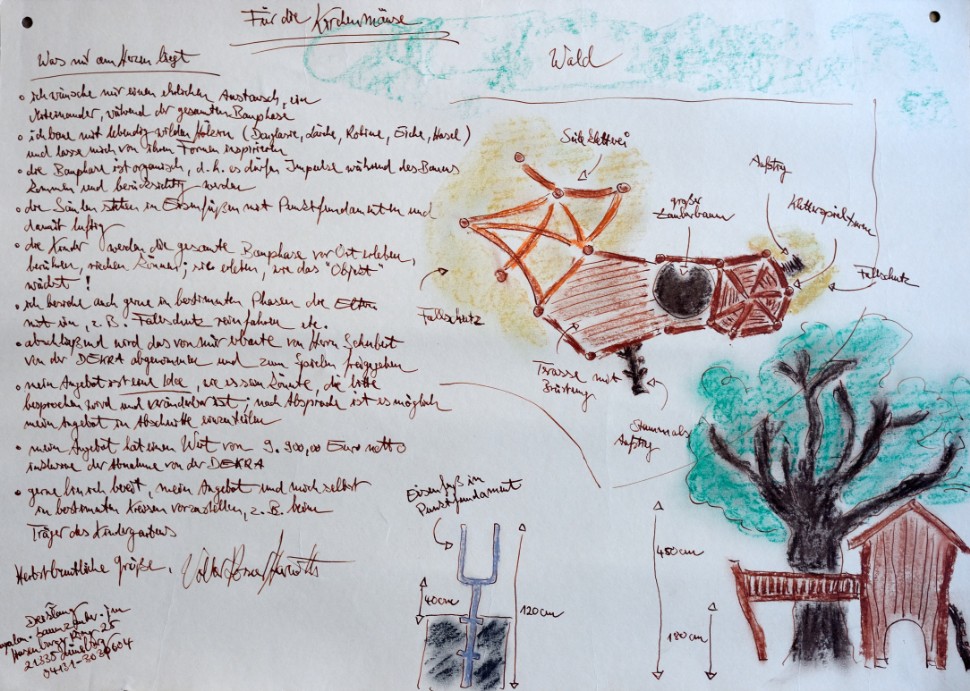 Für die Kirchenmäuse
Was mir am Herzen liegt
• ich wünsche mir einen ehrlichen Austausch, ein
Miteinander, während der gesamten Bauphase
• ich baue mit lebendig wilden Hölzern (Douglasie, Lärche, Robinie, Eiche, Hasel)
und lasse mich von ihren Formen inspirieren
• die Bauphase ist organisch, d.h. es dürfen Impulse während des Bauens
kommen und berücksichtigt werden
• die Säulen stehen in Eisenfüßen mit Punktfundamenten und
damit luftig
• die Kinder werden die gesamte Bauphase vor Ort erleben,
berühren, riechen können; sie erleben, wie das "Objekt"
wächst!
• ich beziehe auch gerne in bestimmten Phasen die Eltern
mit ein, z.B. Fallschutz reinfahren etc.
• abschließend wird das von mir erbaute von Herrn Schubert
von der DEKRA abgenommen und zum Spielen freigegeben
• mein Angebot ist eine Idee, wie es sein könnte, die bitte
besprochen wird und veränderbar ist; nach Absprache ist es möglich
mein Angebot in Abschnitte einzuteilen
• mein Angebot hat einen Wert von 9.900,00 Euro netto
inklusive der Abnahme von der DEKRA
• gerne bin ich bereit, mein Angebot und mich selbst
in bestimmten Kreisen vorzustellen, z.B. beim
Träger des Kindergartens
Herbstbuntliche Grüße,
21335 Lüneburg
04131-3030604
Wald
Seilkletterei
Aufstieg
großer
Zauberbaum
Kletterspielturm
Fallschutz
Fallschutz
Terrasse mit
Brüstung
Stamm als
Aufstieg
Eisenfuß in
Punktfundament
40cm
120cm
450cm
180cm